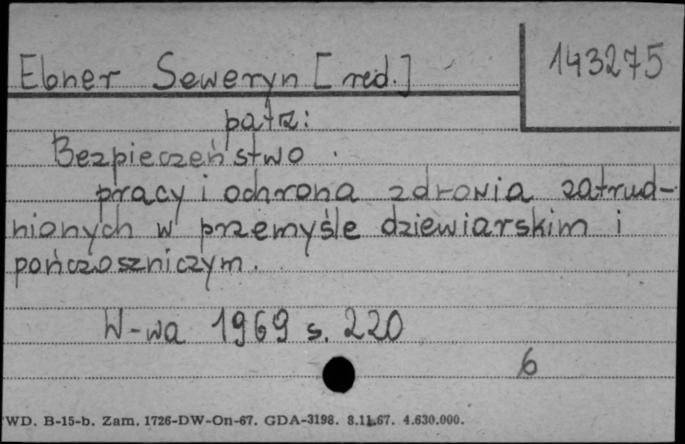 Ebner Seweryn [red.]
143275
patrz:
Bezpieczeństwo
pracy i ochrona zdrowia zatrud-
nionych w przemyśle dziewiarskim i
pończoszniczym.
W-wa 1969 s. 220
6
WD. B-15-b. Zam. 1726-DW-On-67. GDA-3198. 8.11.67. 4.630.000.